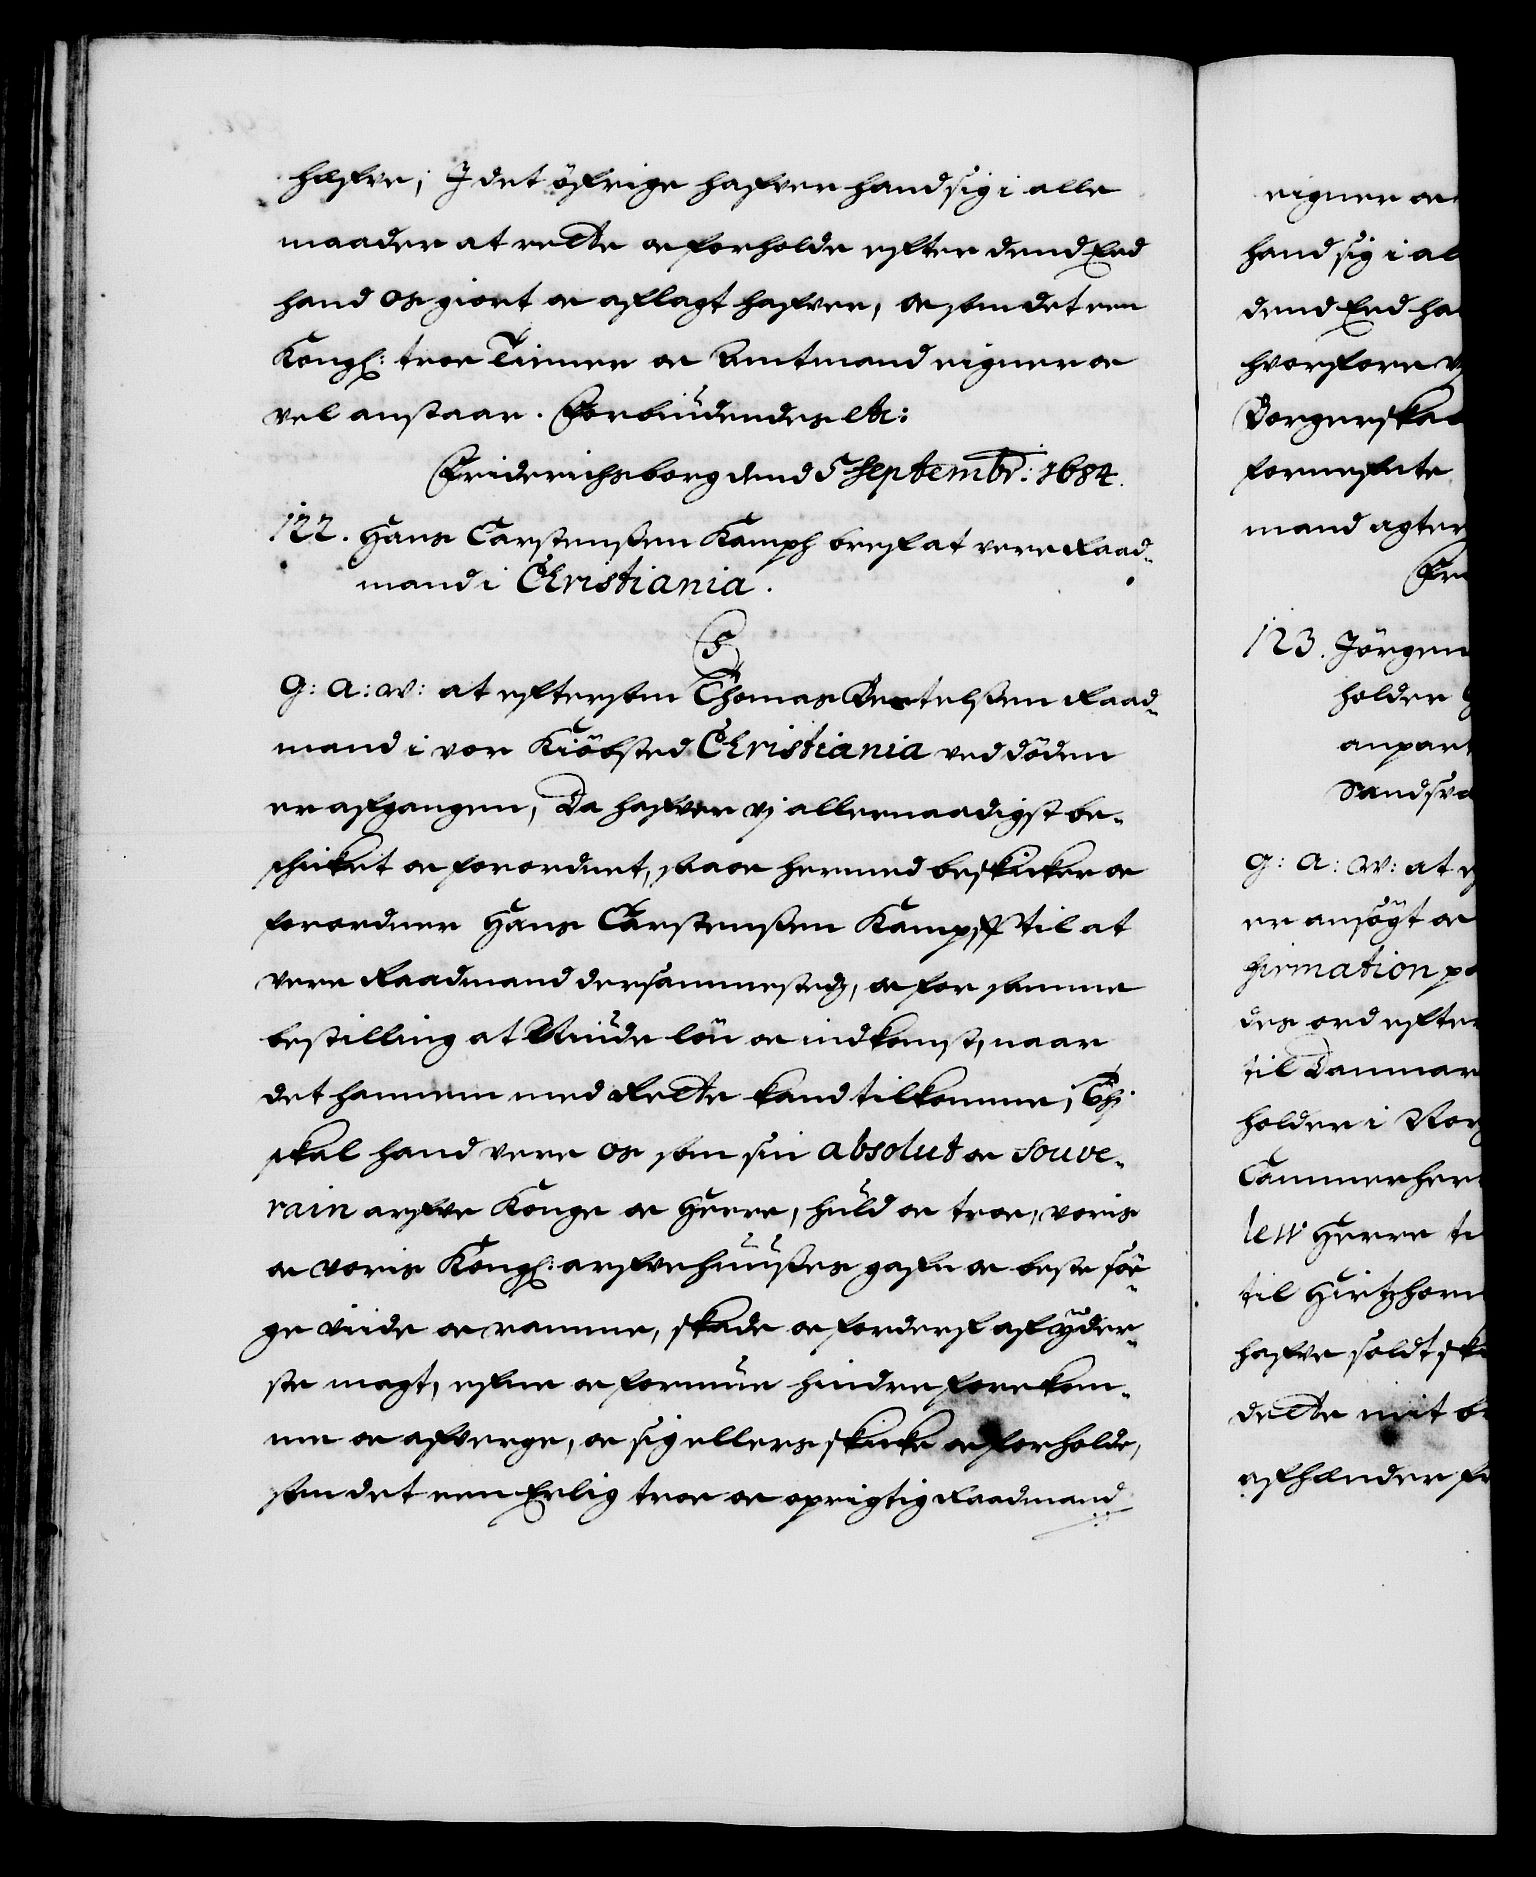 hafve; I det öfrige hafver hand sig i alle
maader at rette oc forholde efter dend Eed
hand os giort oc aflagt hafver, oc som det een
Kongl: troe Tiener oc Amtmand eigner oc
vel anstaar. Forbiudendes etc:
Friderichsborg dend 5 Septembr: 1684.
122. Hans Carstenßen Kamph bref at vere Raad-
mand i Christiania.
C5
G: A: W: at eftersom Thomas Bertelßen Raad-
mand i vor Kiöbsted Christiania ved döden
er afgangen, Da hafver vj allernaadigst be-
schicket oc forordnet, saa oc hermed beskicker oc
forordner Hans Carstenßen Kampff til at
vere Raadmand dersammestedz, oc for samme
bestilling at niude lön oc indkomst, naar
det hannem med Rette kand tilkomme; Thj
skal hand vere os som sin absolut oc Souve-
rain arfve Konge oc Herre, huld oc troe, voris
oc voris Kongl: arfvehuußes gafn oc beste söe-
ge viide oc ramme, skade oc forderf af yder-
ste magt, efne oc formue hindre forekom-
me oc afverge, oc sig ellers skicke oc forholde,
som det een Erlig troe oc oprigtig Raadmand
eigner oc
hand sig i al
dend Eed ha
hvorfore v
Borgerskab
fornefnte
mand agter
Fri
123. Jörgen
holder
anpart
Sandsv
G: A: W: at
er ansögt oc
firmation p
des ord efter
til Danmar
holder i Nor
Cammerher
lew Herre ti
til Hirtzhorn
hafve soldt sk
dette mit br
afhænder fr